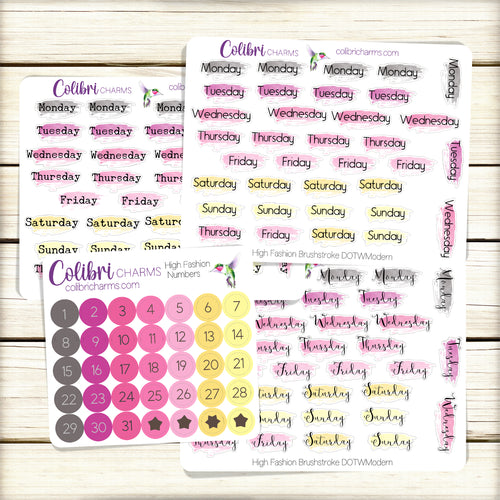 Colibri CHARMS
Monday Monday Monday
Tuesday Tuesday Tuesday
Wednesday Wednesday
Thursday Thursday Thursday
Friday Friday
Saturday Saturday Saturday
Sunday Sunday Sunday
Colibri CHARMS
colibricharms.com
Monday Monday Monday Monday
Tuesday Tuesday Tuesday Tuesday
Wednesday Wednesday Wednesday Wednesday
Thursday Thursday Thursday Thursday
Friday Friday Friday Friday
Saturday Saturday Saturday Saturday
Sunday Sunday Sunday Sunday
Thursday Friday Sunday Monday
Monday
Tuesday
Wednesday
High Fashion Brushstroke DOTWModern
Colibri CHARMS
colibricharms.com
High Fashion
Numbers
1 2 3 4 5 6 7
8 9 10 11 12 13 14
15 16 17 18 19 20 21
22 23 24 25 26 27 28
29 30 31
Monday Monday
Tuesday Tuesday
Wednesday Wednesday
Thursday Thursday
Friday Friday Friday
Saturday Saturday Saturday
Sunday Sunday Sunday
Friday Saturday Sunday
Monday
Tuesday
Wednesday
High Fashion Brushstroke DOTWModern